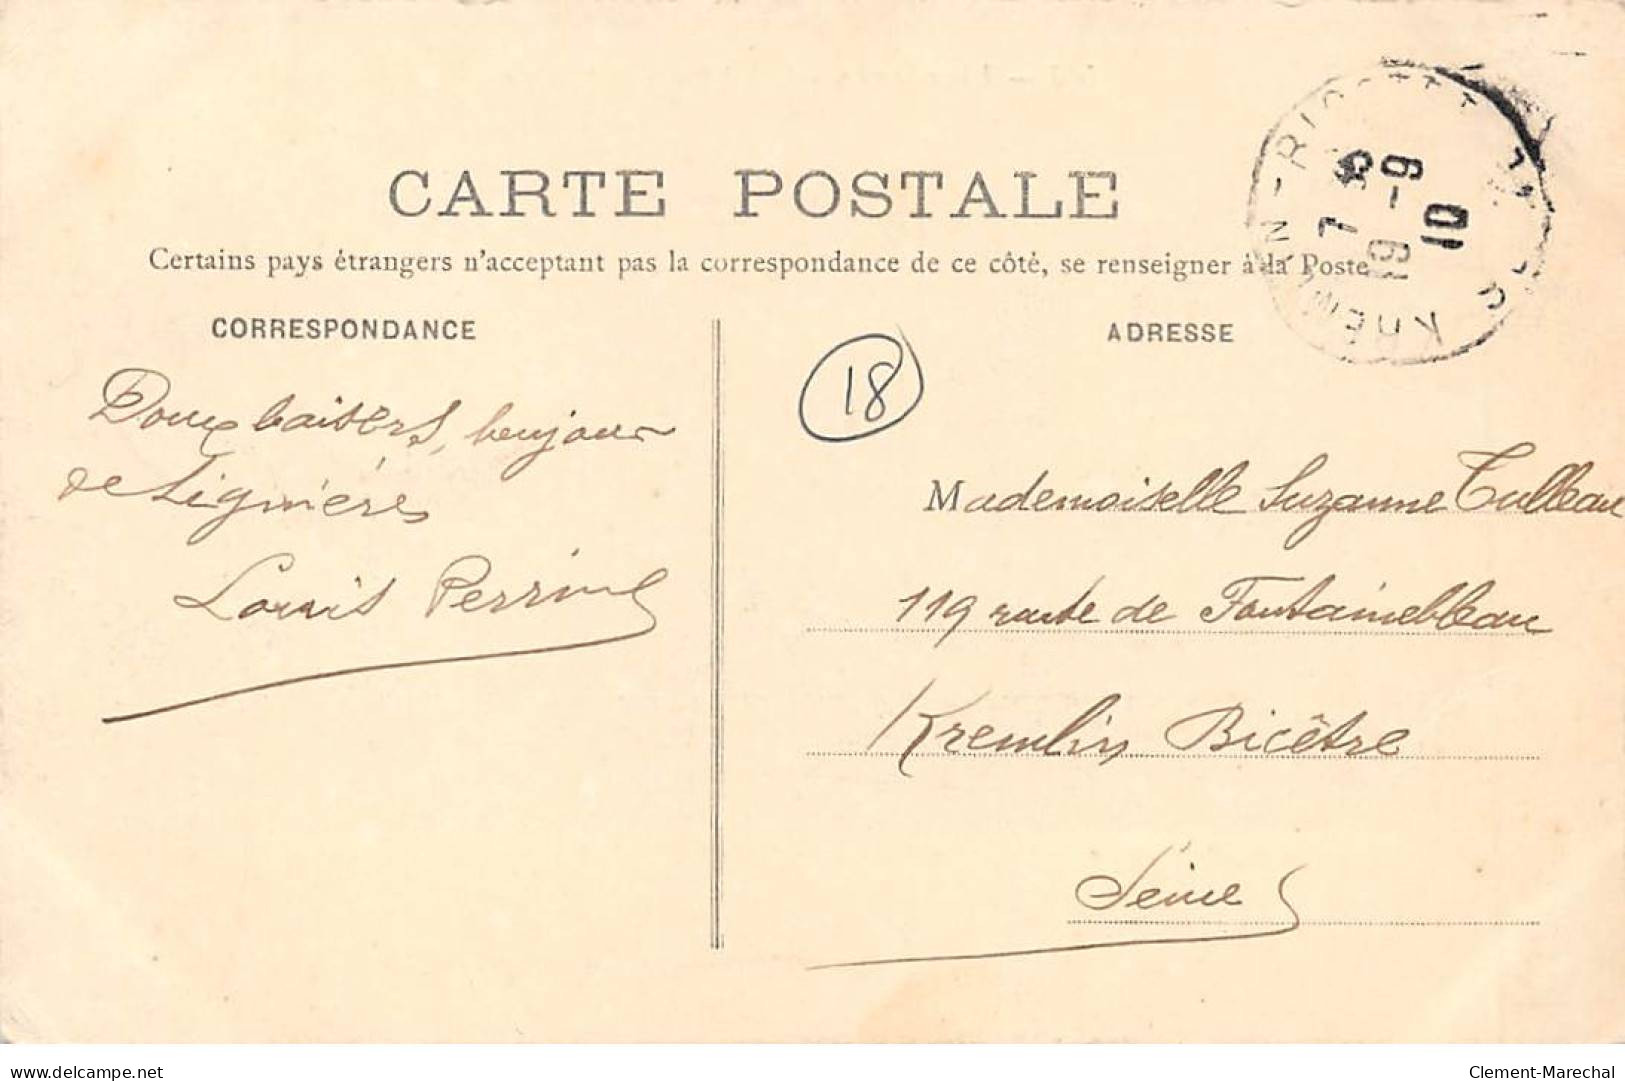 CARTE POSTALE
Certains pays étrangers n'acceptent pas la correspondance de ce côté, se renseigner à la Poste
CORRESPONDANCE
ADRESSE
18
KREMLIN-BICETRE
7
19 -9
10
Doux baisers, bonjour
de Lignières
Louis Perrin
Mademoiselle Suzanne Tulleau
119 route de Fontainebleau
Kremlin Bicêtre
Seine
delcampe.net
Clement-Marechal